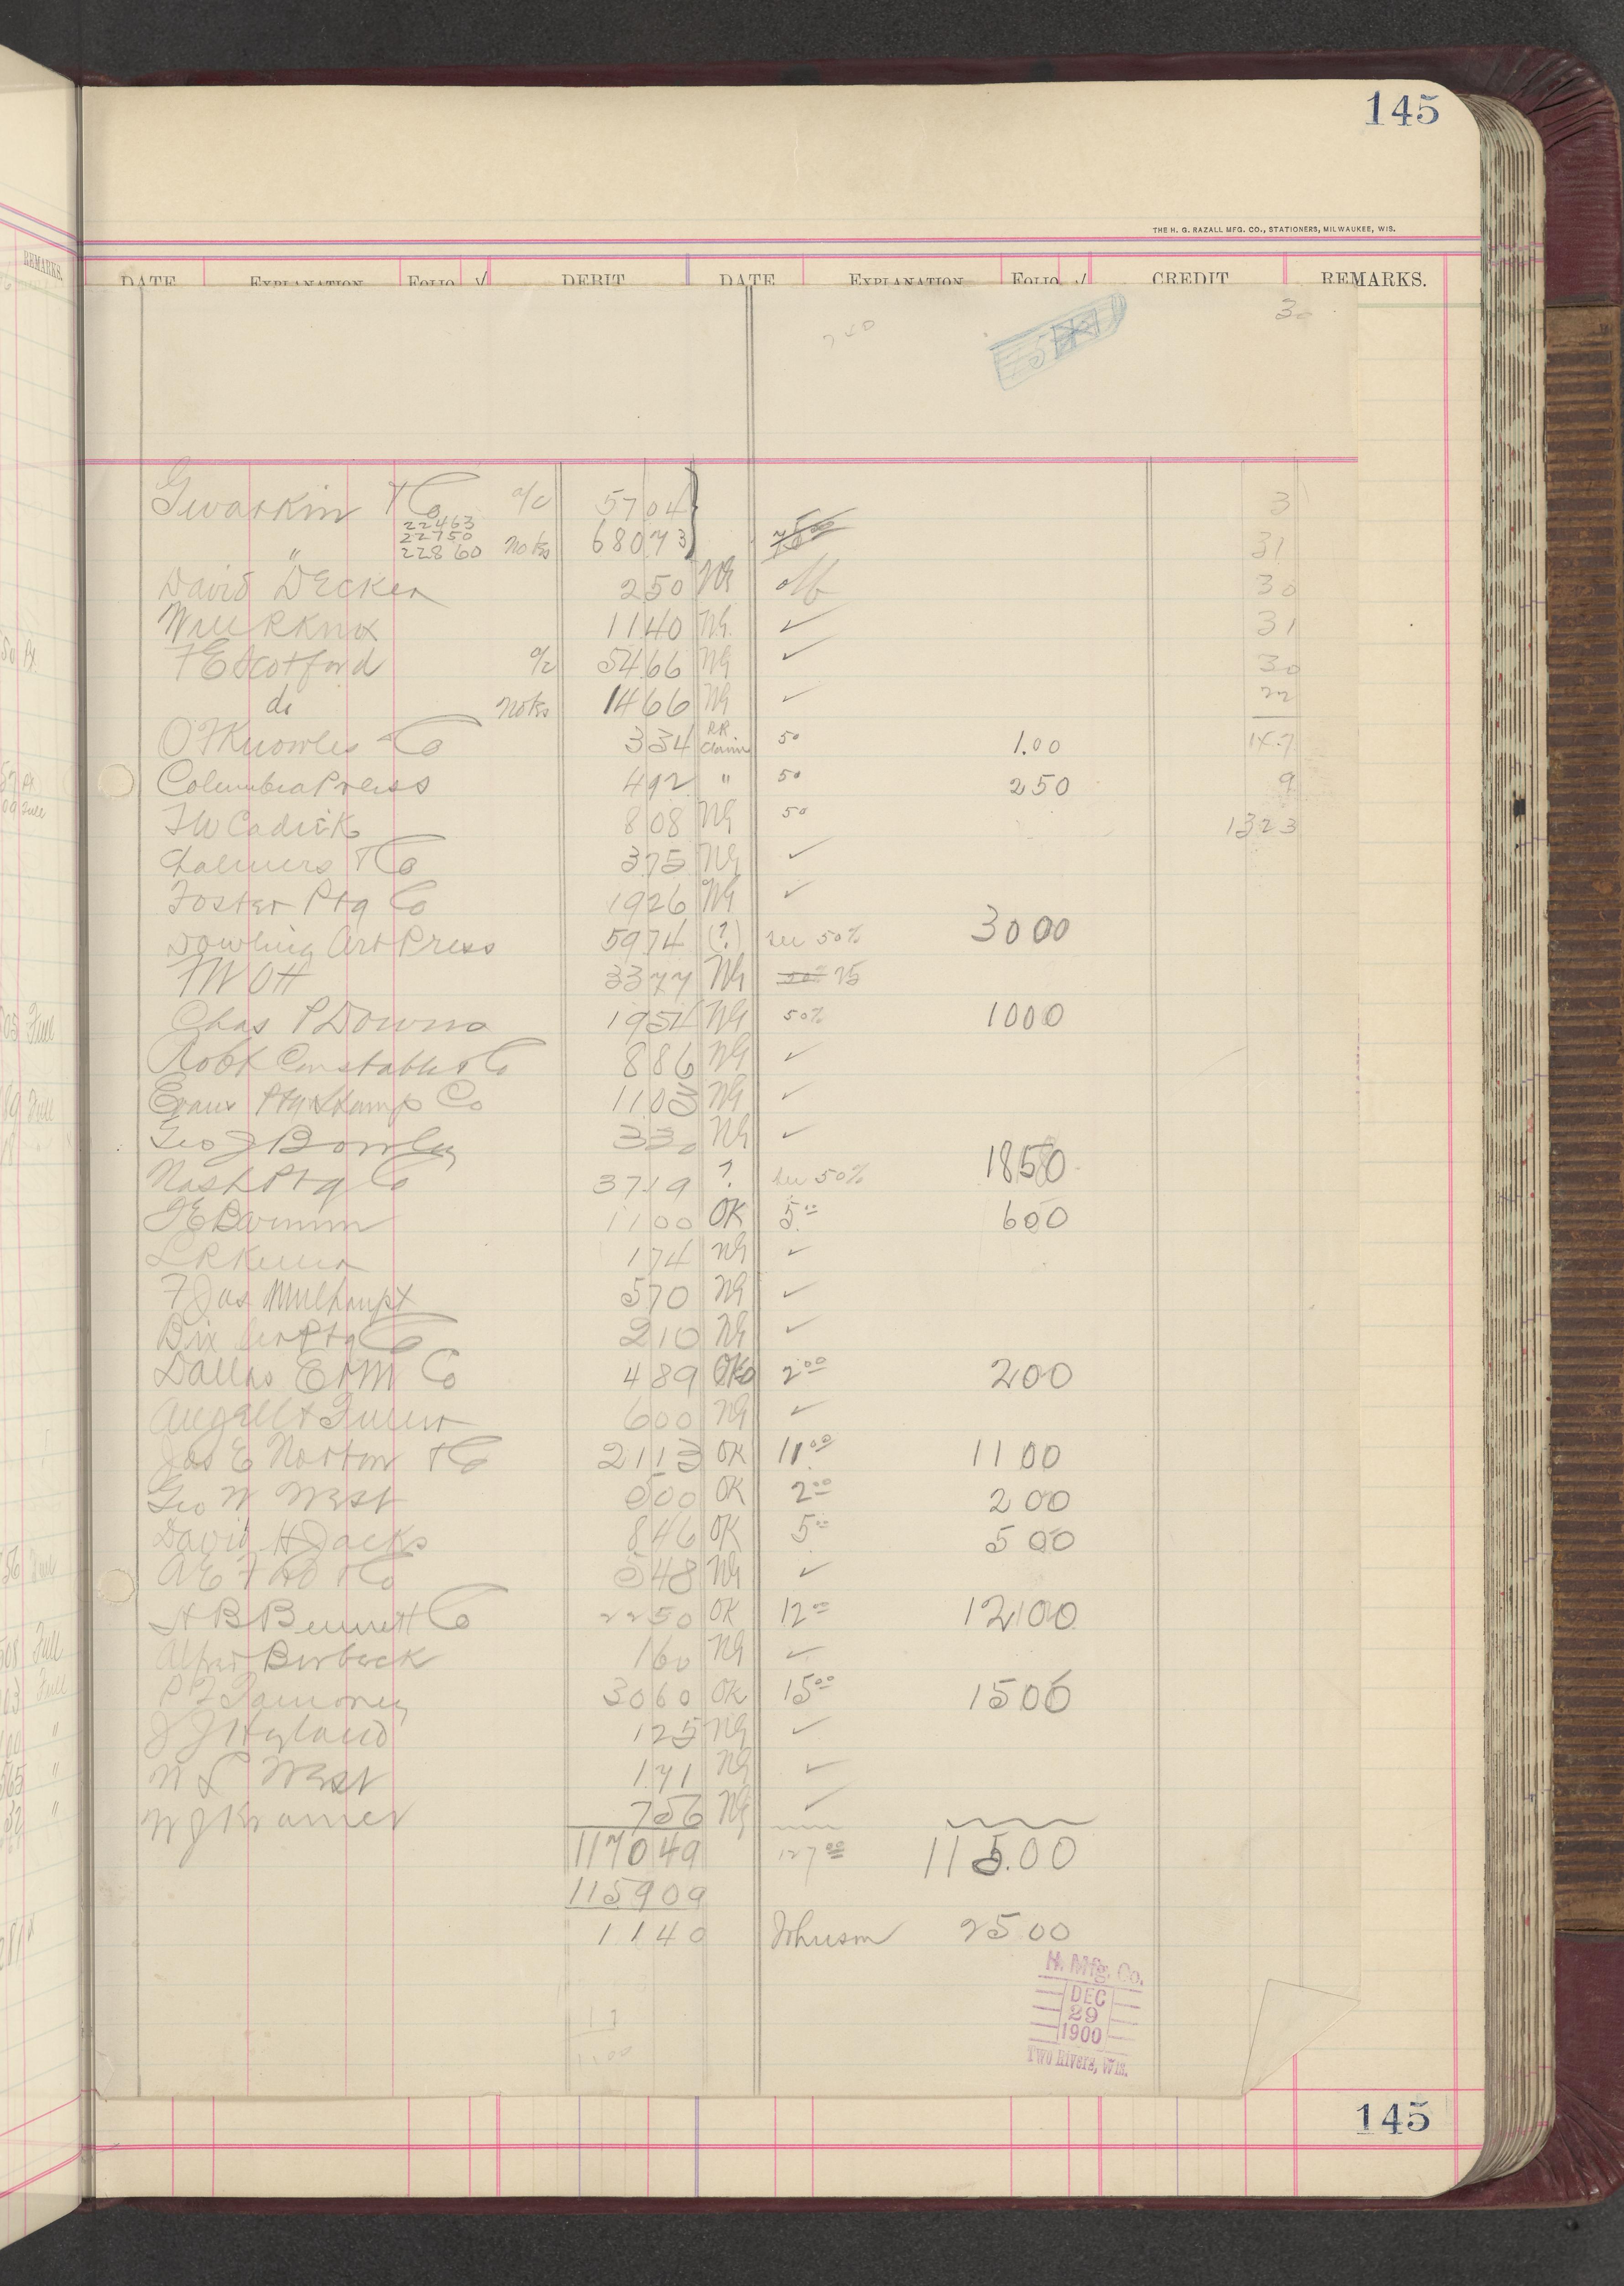 145
THE H. G. RAZALL MFG. CO., STATIONERS, MILWAUKEE, WIS.
REMARKS.
DATE EXPLANATION FOLIO √ DEBIT DATE EXPLANATION FOLIO √ CREDIT REMARKS.
30
& Co a/c 5704 3
22463
22750
" 22860 Notes 68073 31
David Decker 250 NG off 30
Knox 1140 NG ✓ 31
F E Scotford a/c 5466 NG ✓ 30
do Notes 1466 NG ✓ 22
O F Knowles & Co 334 RR Claim 50 1.00 147
Columbia Press 492 " 50 250 9
F W Cadick 808 NG 50 1323
Chalmers & Co 375 NG ✓
Foster Ptg Co 1926 NG ✓
Dowling Art Press 5974 (?) see 50% 3000
F W Ott 3377 NG 50% 25
Chas P Downs 1954 NG 50% 1000
Robt Constable & Co 886 NG ✓
Evans Ptg & Stamp Co 1103 NG ✓
Geo J Bowley 330 NG ✓
Nash Ptg Co 3719 ? see 50% 1850
Barnum 1100 OK 5 00 600
174 NG ✓
F Jas Mulhaupt 570 NG ✓
Dix Ptg Co 210 NG ✓
Dallas E & M Co 489 OK 2 00 200
Angell & 600 NG ✓
Jas E Norton & Co 2113 OK 11 00 1100
Geo W West 500 OK 2 00 200
David H Jacks 846 OK 5 00 500
548 NG ✓
H B Bennett Co 2250 OK 12 00 1200
Burback 160 NG ✓
3060 OK 15 00 1500
J J Hyland 125 NG ✓
West 171 NG ✓
W J Kramer 756 NG ✓
117049 127 00 115.00
115909
1140 Johnson 2500
H. Mfg. Co.
DEC
29
1900
Two Rivers, Wis.
145